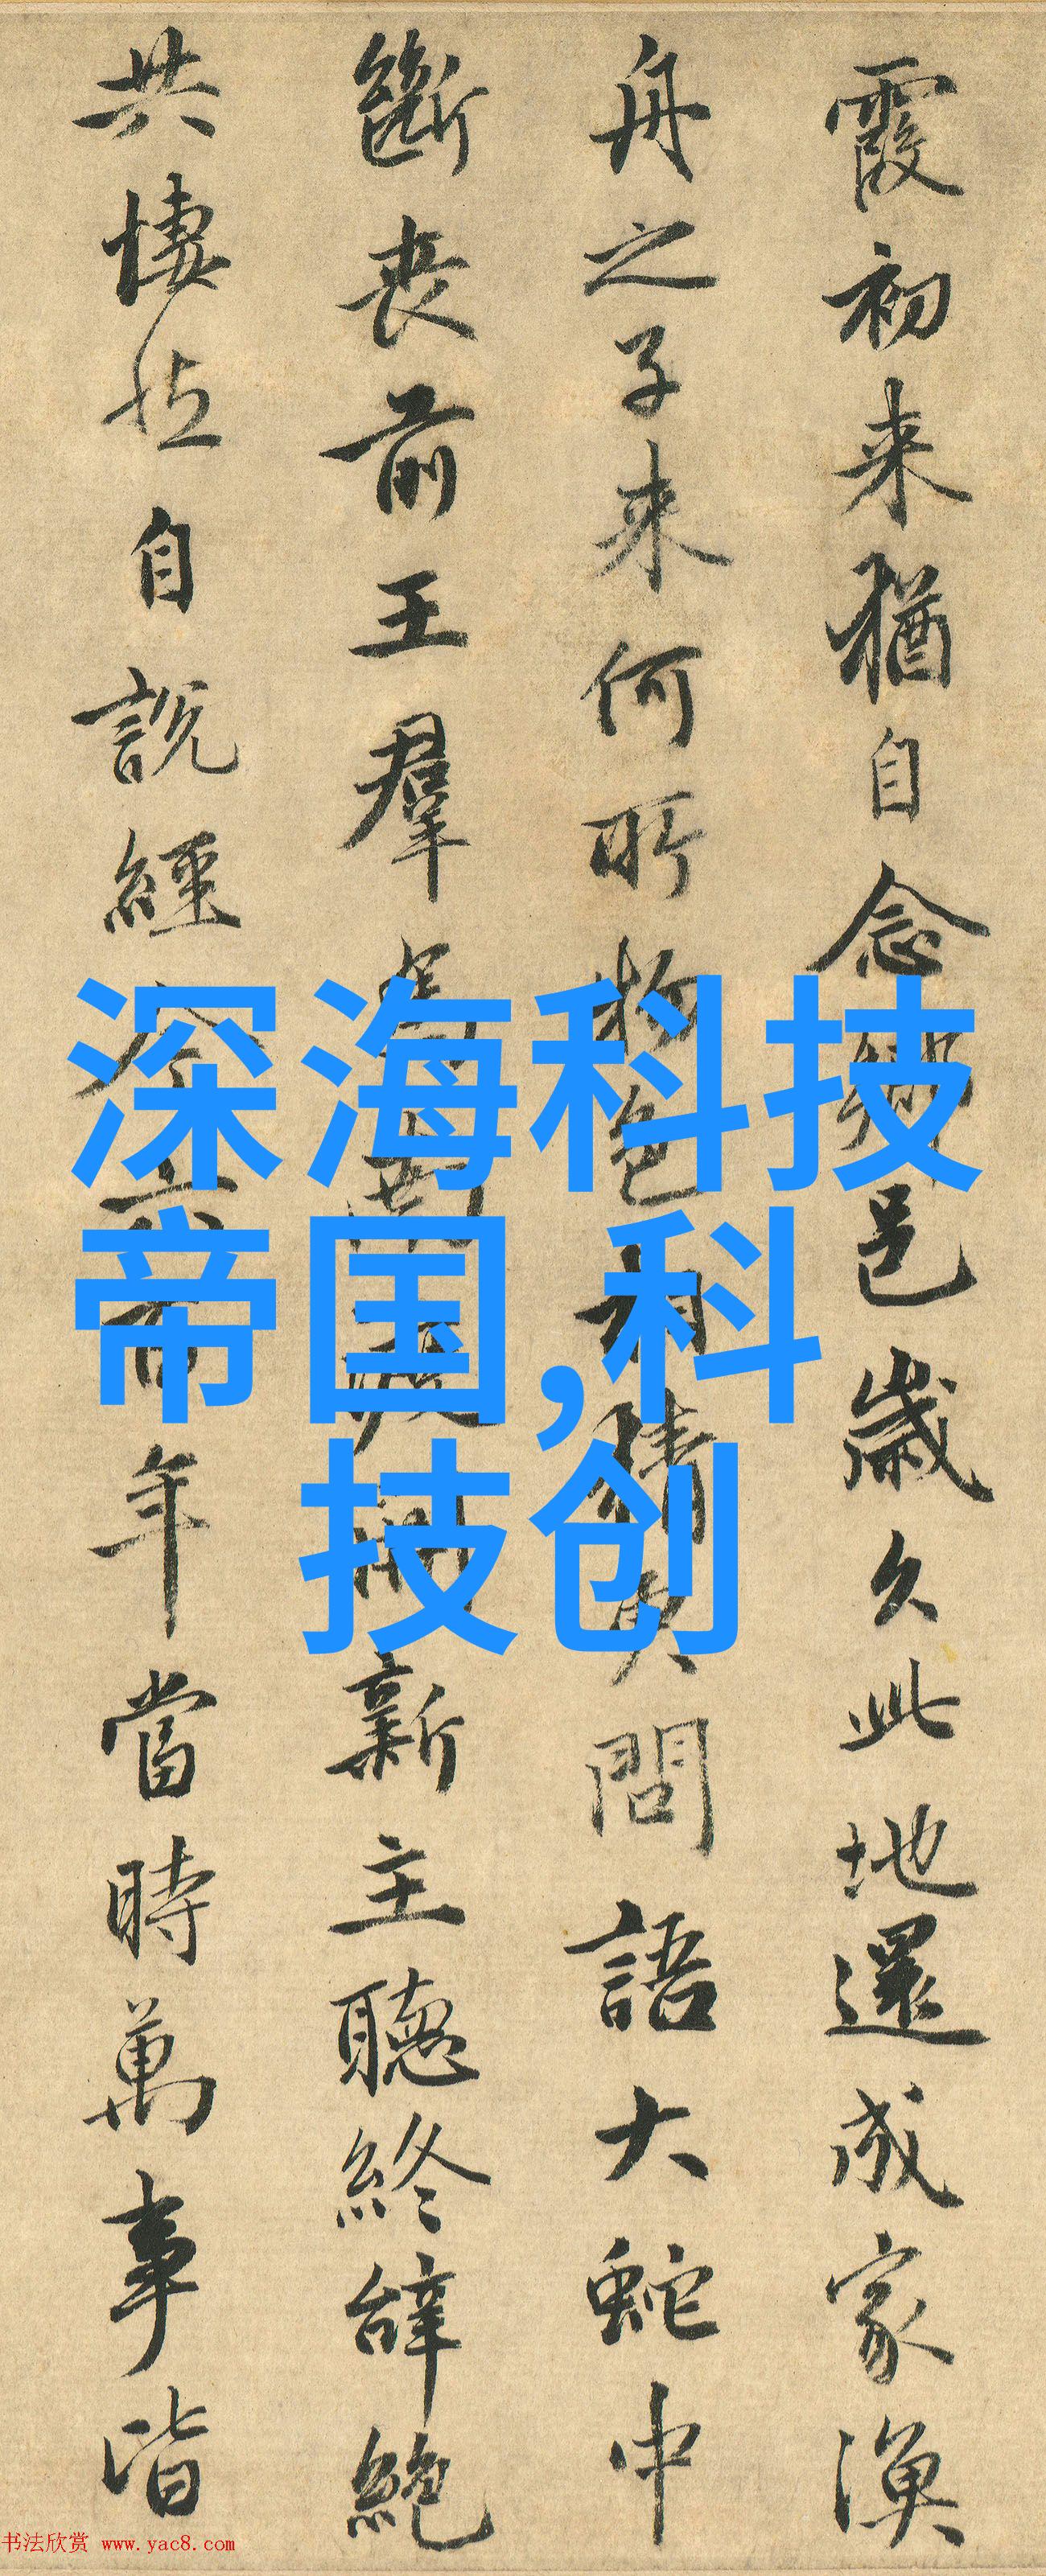 霞初来猶自念鄉邑歲久此地還成家漁
舟之子来何所物色相猜更問語大蛇中
斷喪前王羣
新主聽終辞絶
共悽然自說經今六百年當時萬事皆
深海科技
帝国,科
技创
书法欣赏 www.yac8.com